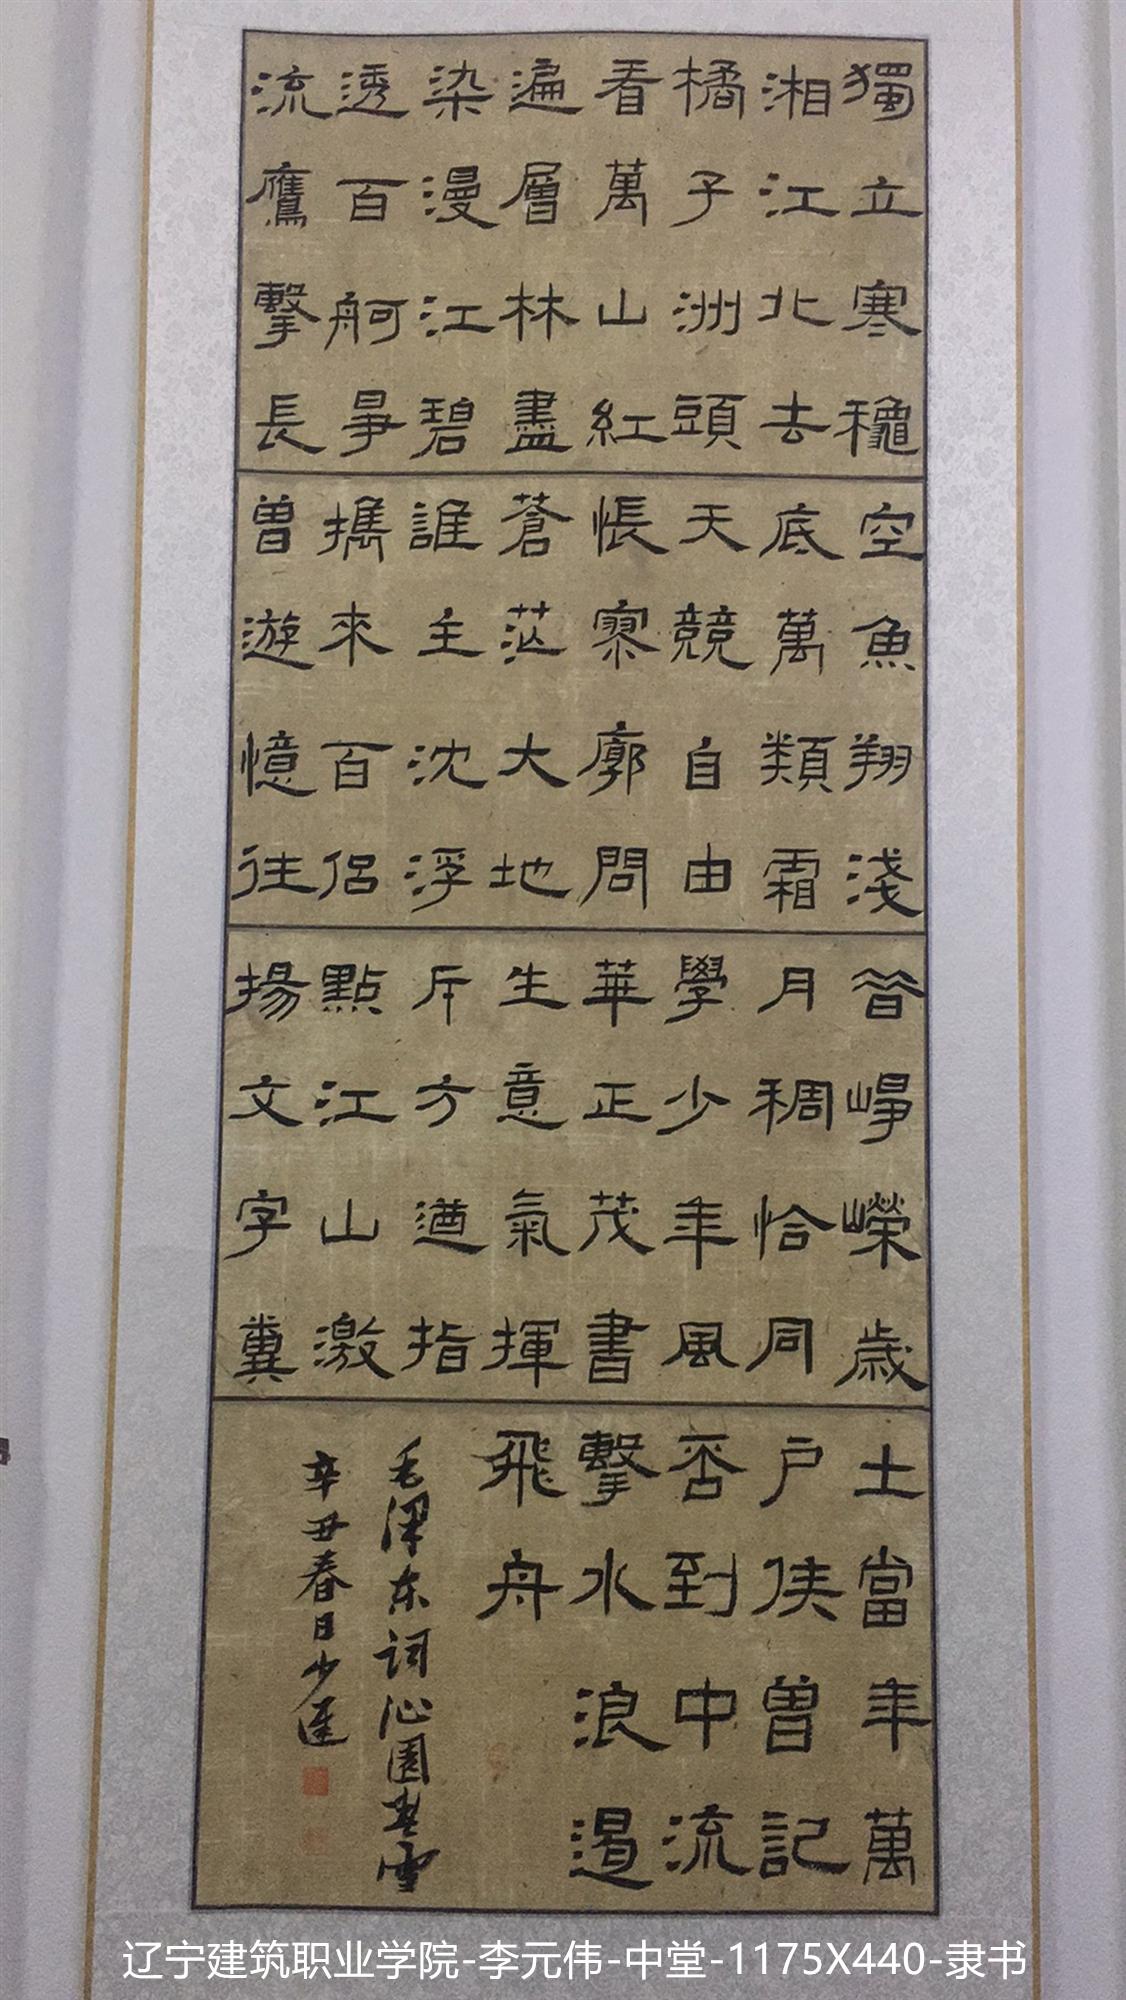 獨立寒穐
湘江北去
橘子洲頭
看萬山紅
遍層林盡
染漫江碧
透百舸爭
流鷹擊長
空魚翔淺
底萬類霜
天競自由
悵寥廓問
蒼茫大地
誰主沈浮
攜來百侶
曾遊憶往
昔崢嶸歲
月稠恰同
學少年風
華正茂書
生意氣揮
斥方遒指
點江山激
揚文字糞
土當年萬
户侯曾記
否到中流
擊水浪遏
飛舟
毛泽东词沁園春雪
辛丑春日少
辽宁建筑职业学院-李元伟-中堂-1175X440-隶书